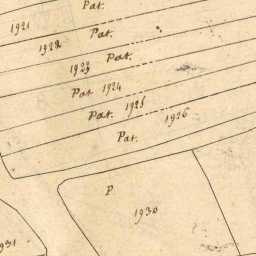 Pat.
1921
Pat.
1922
Pat.
1923
Pat 1924
Pat. 1925
Pat. 1926
P
1930
931